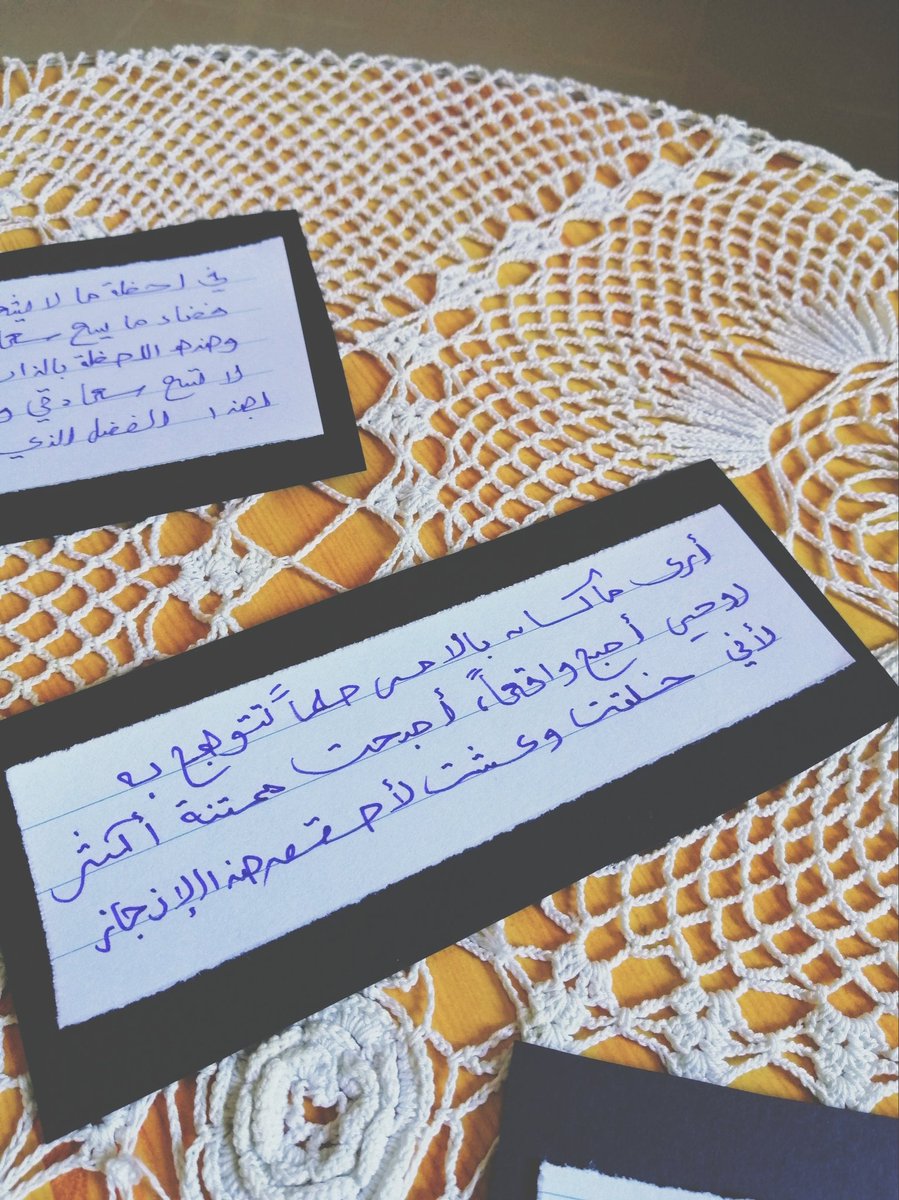 في لحظة ما لا يتسع
فضاء ما يسع سعا
وهذه اللحظة بالذات
لا تسع سعادتي و
لهذا الفضل الذي
أرى ما كان بالأمس حلماً تتوهج به
روحي أصبح واقعاً، أصبحت ممتنة أكثر
لأني خلقت وعشت لأحقق هذا الإنجاز